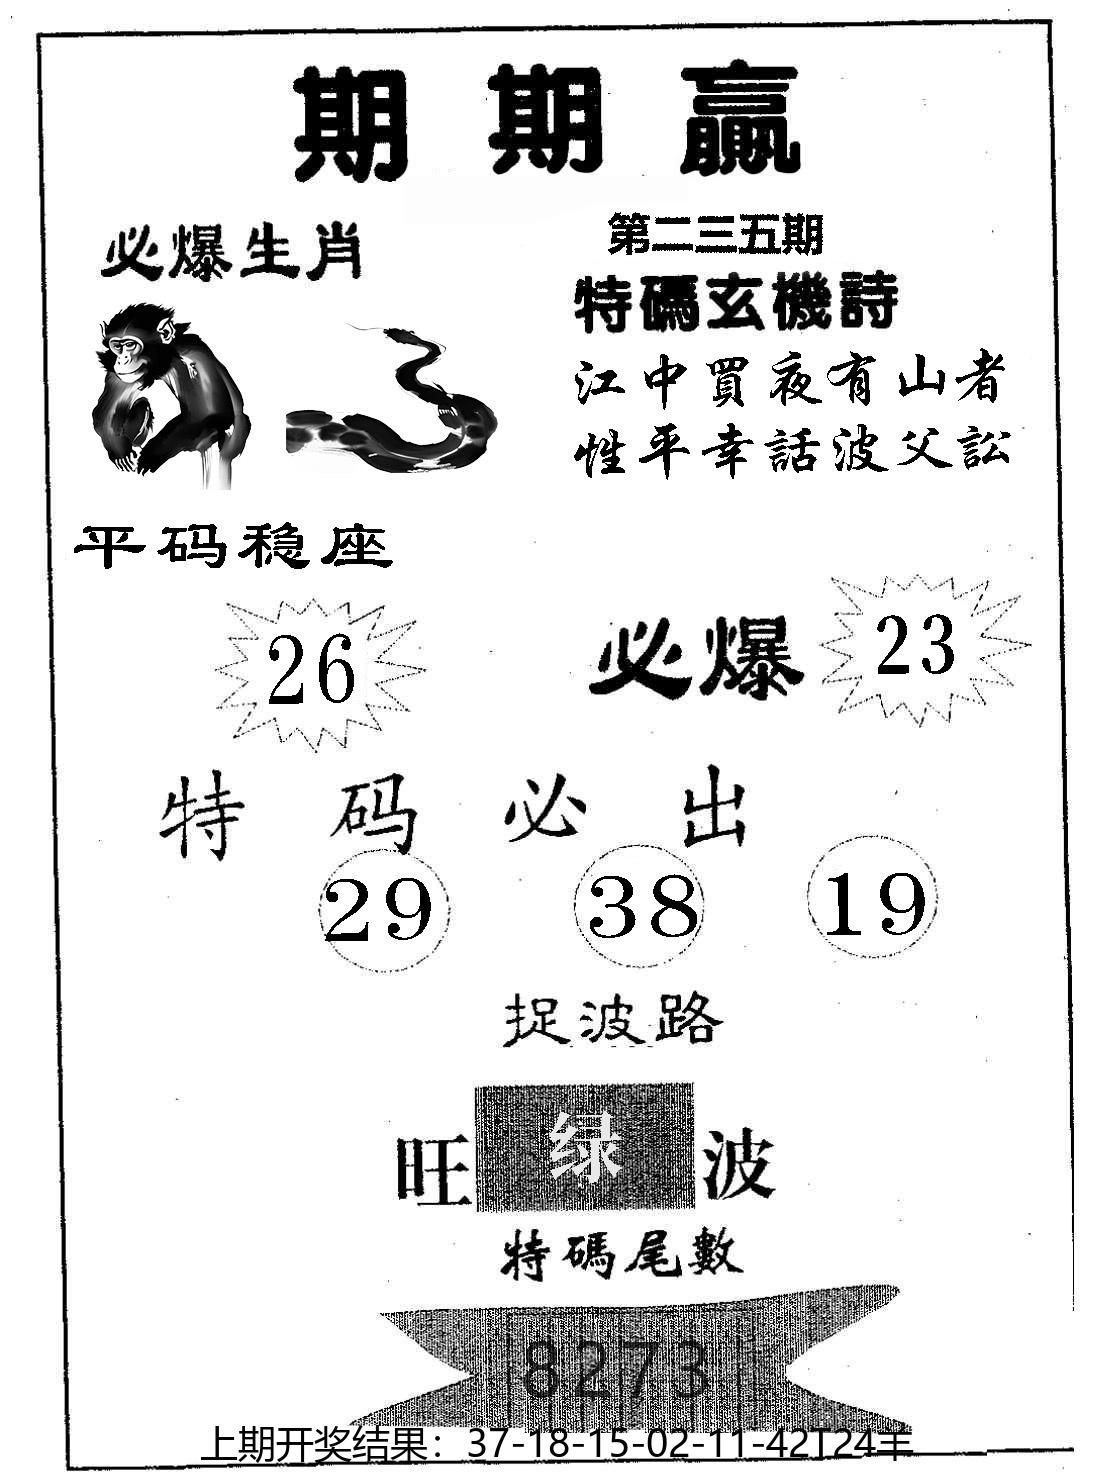 期期赢
必爆生肖
第二三五期
特碼玄機詩
江中買夜有山者
性平幸話波父訟
平码稳座
26
必爆 23
特码必出
29 38 19
捉波路
旺绿波
特碼尾數
8273
上期开奖结果：37-18-15-02-11-42T24羊